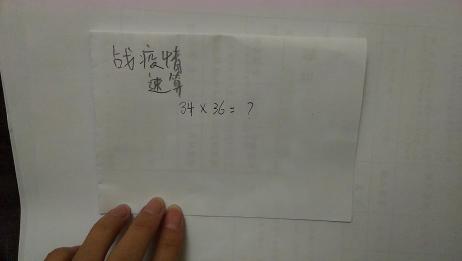 战疫情
速算
34×36=?